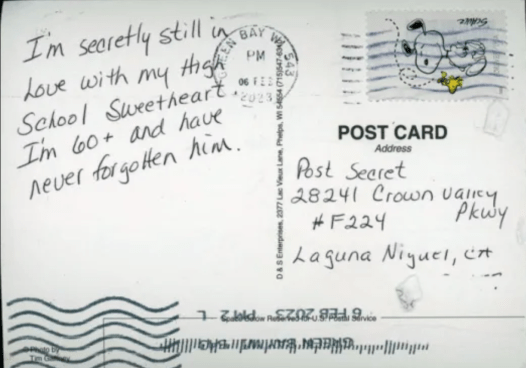 I'm secretly still in
Love with my High
School Sweetheart
I'm 60+ and have
never forgotten him.
GREEN BAY WI 543
PM
06 FEB
2023
SCHULZ
POST CARD
Address
Post Secret
28241 Crown Valley
Pkwy
#F224
Laguna Niguel, CA
D & S Enterprises, 2377 Lac Vieux Lane, Phelps, WI 54554 (715)547-
Space Below Reserved for U.S. Postal Service
6 FEB 2023 PM 2 L
GREEN BAY WI 543
© Photo by
Tim